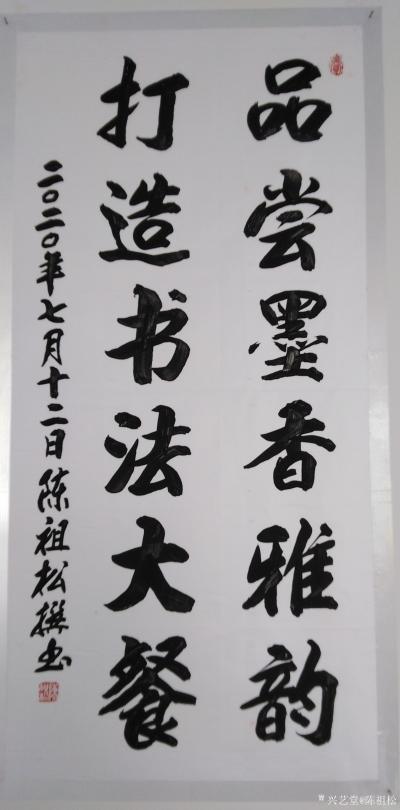 品尝墨香雅韵
打造书法大餐
二〇二〇年七月十二日陈祖松撰书
兴艺堂@陈祖松